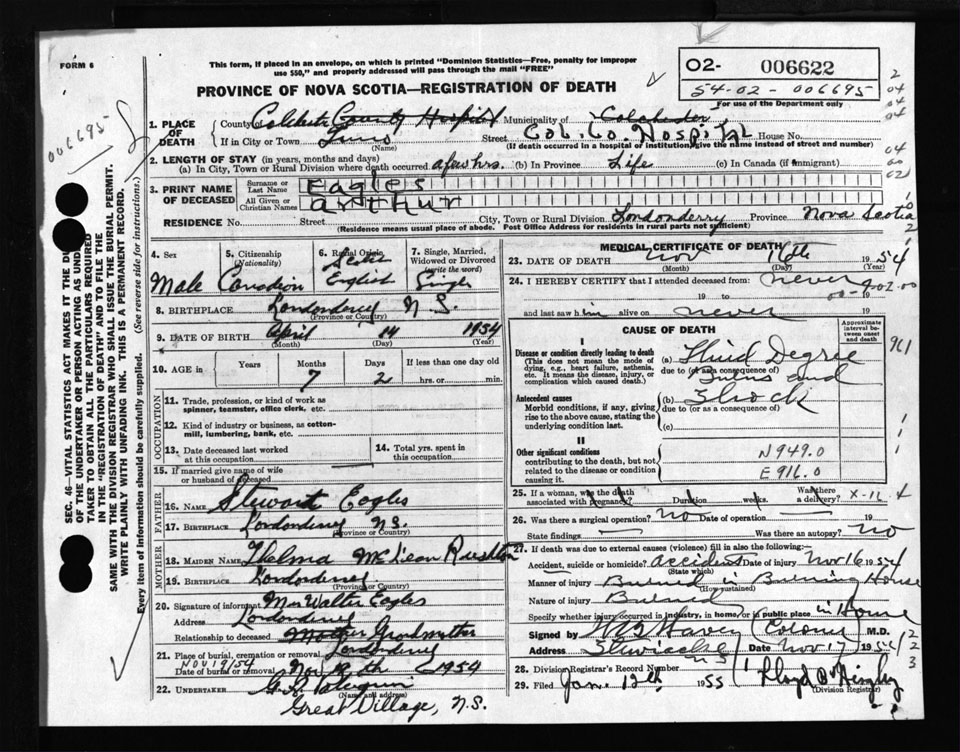 FORM 6
This form, if placed in an envelope, on which is printed "Dominion Statistics—Free, penalty for improper
use $50," and properly addressed will pass through the mail "FREE"
PROVINCE OF NOVA SCOTIA—REGISTRATION OF DEATH
O2- 006622
54-02-006695
For use of the Department only
006695
SEC. 46—VITAL STATISTICS ACT MAKES IT THE DUTY
OF THE UNDERTAKER OR PERSON ACTING AS UNDER
TAKER TO OBTAIN ALL THE PARTICULARS REQUIRED
IN THE "REGISTRATION OF DEATH" AND TO FILE THE
SAME WITH THE DIVISION REGISTRAR WHO SHALL ISSUE THE BURIAL PERMIT.
WRITE PLAINLY WITH UNFADING INK. THIS IS A PERMANENT RECORD.
Every item of information should be carefully supplied. (See reverse side for instructions.)
1. PLACE OF DEATH
County of Colchester County Hospital Municipality of Colchester
If in City or Town Truro Street Col. Co. Hospital House No.
(Name) (If death occurred in a hospital or institution, give the name instead of street and number)
2. LENGTH OF STAY (in years, months and days)
(a) In City, Town or Rural Division where death occurred a few hrs. (b) In Province Life (c) In Canada (if immigrant)
3. PRINT NAME OF DECEASED
Surname or Last Name Eagles
All Given or Christian Names Arthur
RESIDENCE No. Street City, Town or Rural Division Londonderry Province Nova Scotia
(Residence means usual place of abode. Post Office Address for residents in rural parts not sufficient)
4. Sex 5. Citizenship (Nationality) 6. Racial Origin 7. Single, Married, Widowed or Divorced (write the word)
Male Canadian English Single
8. BIRTHPLACE Londonderry N.S.
(Province or Country)
9. DATE OF BIRTH April 14 1954
(Month) (Day) (Year)
10. AGE in Years Months 7 Days 2 If less than one day old hrs. or min.
OCCUPATION
11. Trade, profession, or kind of work as
spinner, teamster, office clerk, etc.
12. Kind of industry or business, as cotton-
mill, lumbering, bank, etc.
13. Date deceased last worked at this occupation
14. Total yrs. spent in this occupation
15. If married give name of wife
or husband of deceased
FATHER
16. NAME Stewart Eagles
17. BIRTHPLACE Londonderry N.S.
(Province or Country)
MOTHER
18. MAIDEN NAME Thelma McLean Rushton
19. BIRTHPLACE Londonderry
(Province or Country)
20. Signature of informant Mrs Walter Eagles
Address Londonderry
Relationship to deceased Grandmother
21. Place of burial, cremation or removal Londonderry
NOV 19/54
Date of burial or removal Nov 19th 1954
22. UNDERTAKER
(Name and address)
Great Village, N.S.
MEDICAL CERTIFICATE OF DEATH
23. DATE OF DEATH Nov 16th 1954
(Month) (Day) (Year)
24. I HEREBY CERTIFY that I attended deceased from never
19 to 19
and last saw him alive on never 19
CAUSE OF DEATH
Approximate interval between onset and death
I
Disease or condition directly leading to death (a) Third Degree
(This does not mean the mode of dying, e.g., heart failure, asthenia, etc. It means the disease, injury, or complication which caused death.)
due to (or as a consequence of) Burns and
Antecedent causes (b) Shock
Morbid conditions, if any, giving rise to the above cause, stating the underlying condition last.
due to (or as a consequence of)
(c)
II
Other significant conditions
contributing to the death, but not related to the disease or condition causing it.
N949.0
E916.0
25. If a woman, was death associated with pregnancy? Duration weeks. Was there a delivery? X-16 4
26. Was there a surgical operation? No Date of operation 19
State findings Was there an autopsy? No
27. If death was due to external causes (violence) fill in also the following:—
Accident, suicide or homicide? accident Date of injury Nov 16 1954
(State which)
Manner of injury Burned in Burning House
(How sustained)
Nature of injury Burned
Specify whether injury occurred in industry, in home, or in public place in Home
Signed by M.D.
Address Stewiacke N S Date Nov 17 1954
28. Division Registrar's Record Number
29. Filed Jan. 12th, 1955 Lloyd B
(Division Registrar)